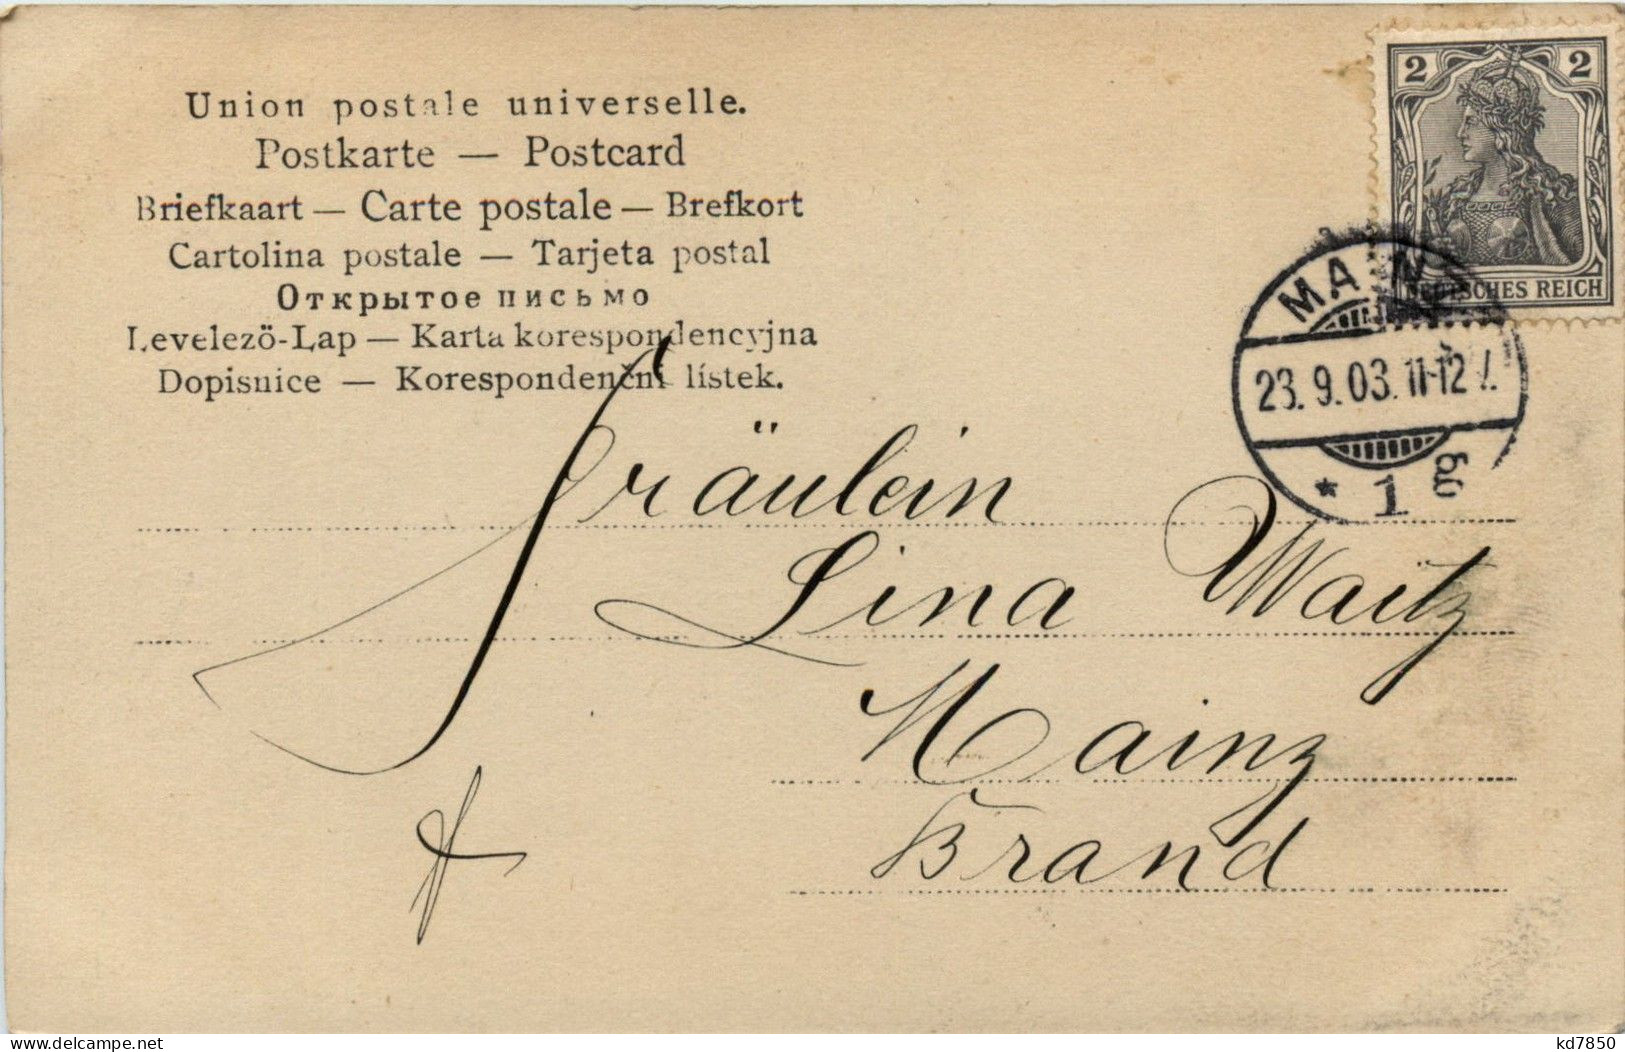 Union postale universelle.
Postkarte — Postcard
Briefkaart — Carte postale — Brefkort
Cartolina postale — Tarjeta postal
Открытое письмо
Levelezö-Lap — Karta korespondencyjna
Dopisnice — Korespondenční lístek.
2 2
DEUTSCHES REICH
MAINZ
23.9.03.11-12
* 1
Fräulein
Lina Waitz
Mainz
Brand
kd7850